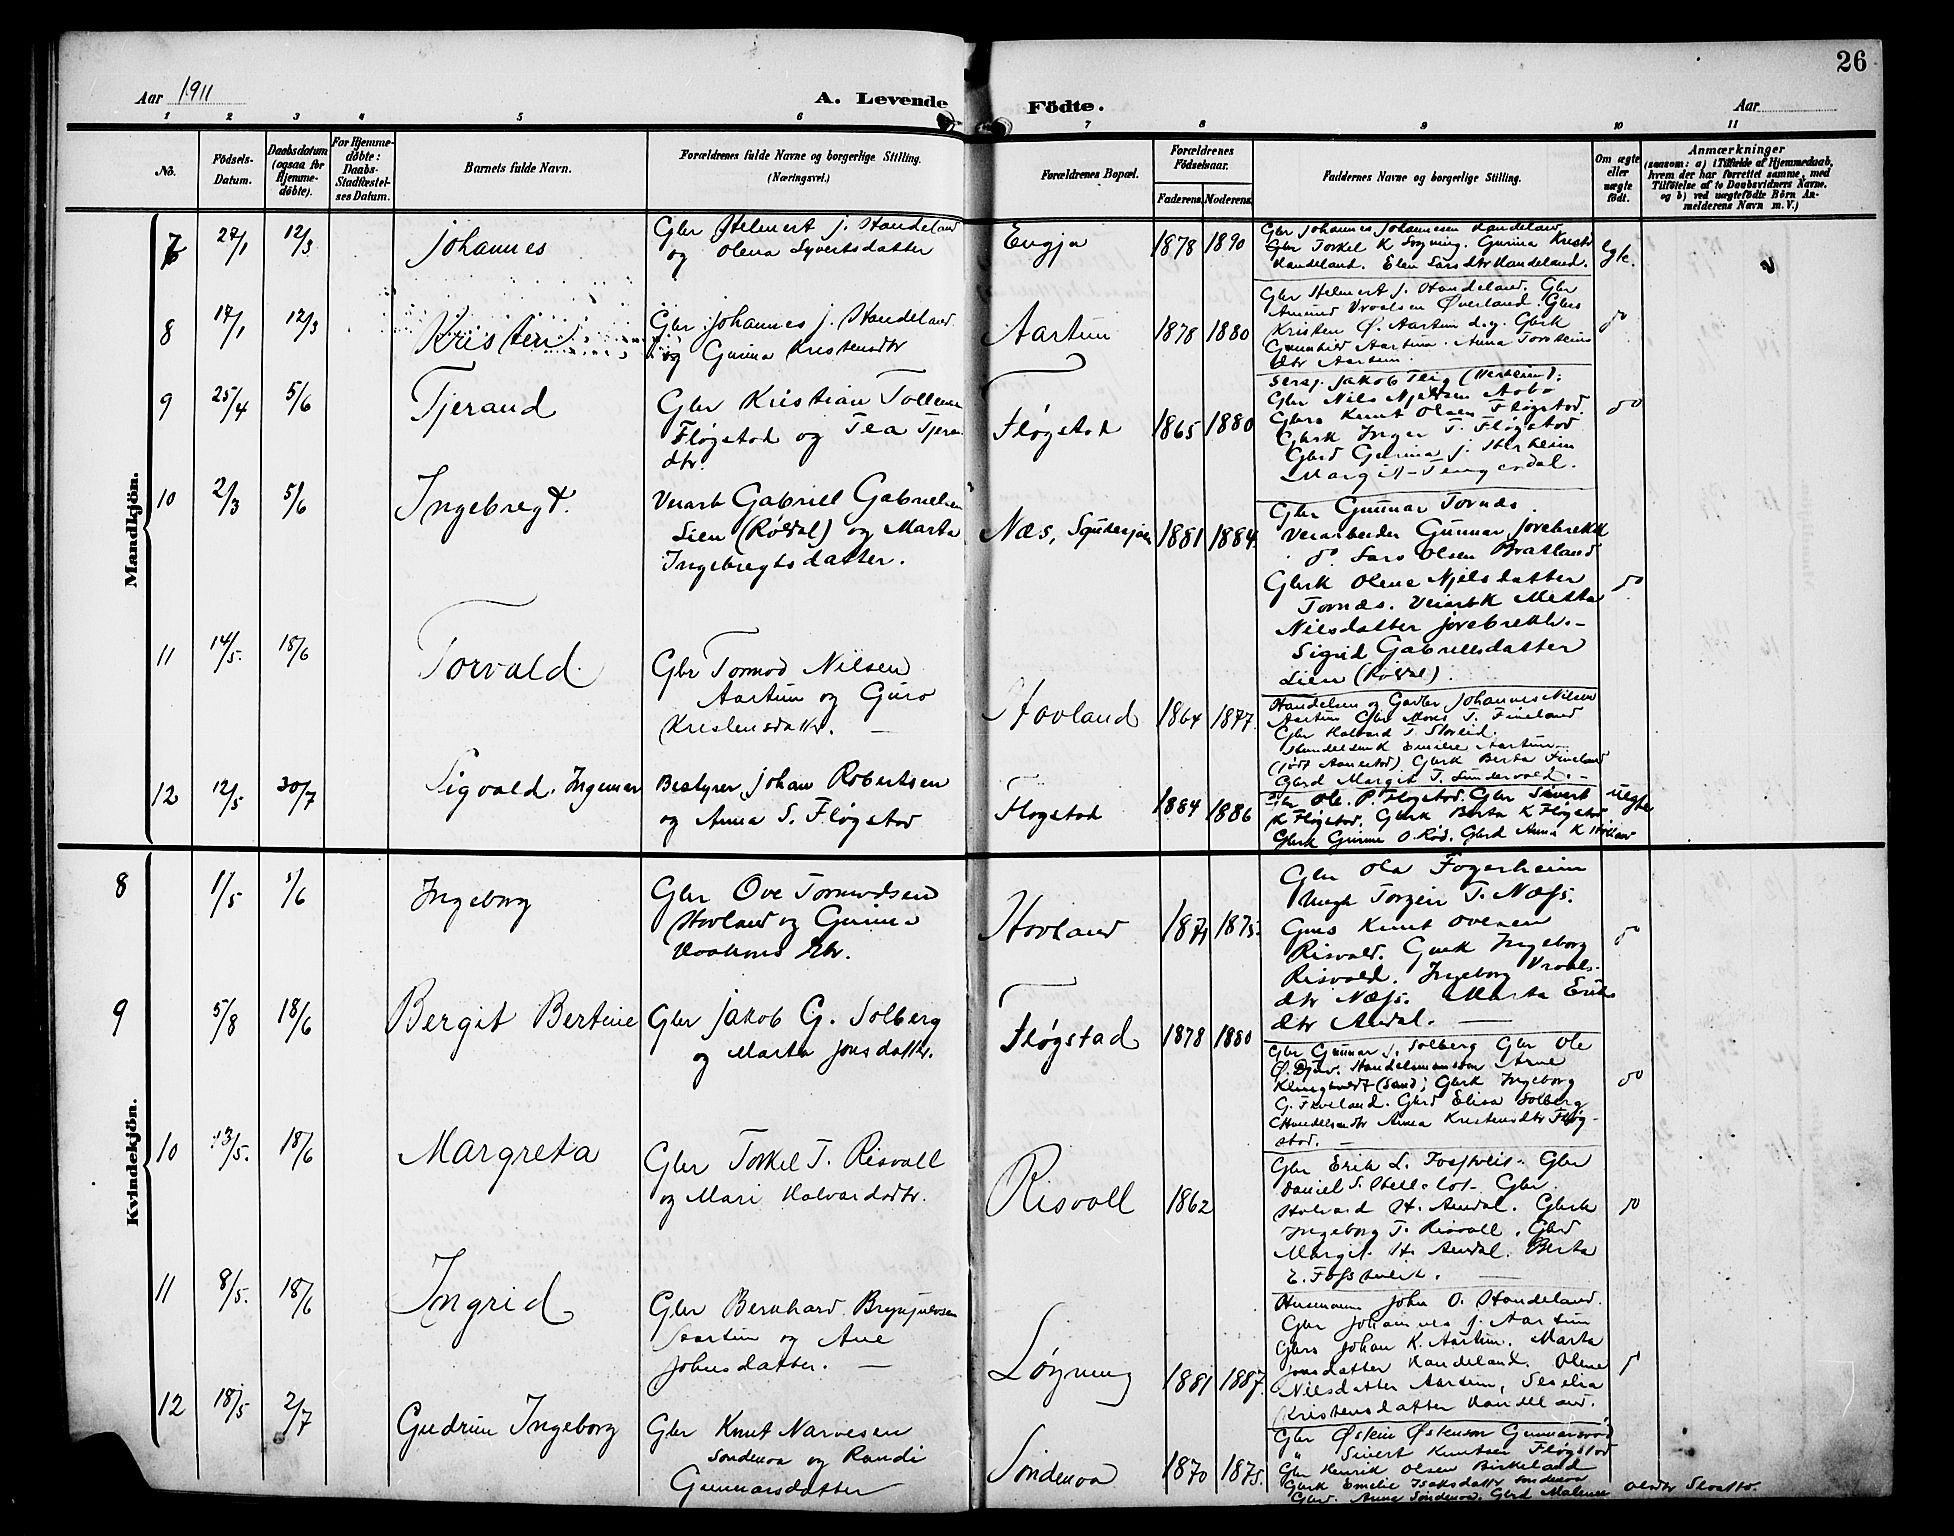 26
Aar 1911
A. Levende Födte.
Aar
1 2 3 4 5 6 7 8 9 10 11
No.
Födsels-Datum.
Daabsdatum (ogsaa for Hjemmedöbte).
For Hjemmedöbte: Daabs-Stadfæstelses Datum.
Barnets fulde Navn.
Forældrenes fulde Navne og borgerlige Stilling. (Næringsvei.)
Forældrenes Bopæl.
Forældrenes Födselsaar.
Faderens. Moderens.
Faddernes Navne og borgerlige Stilling.
Om ægte eller uægte födt.
Anmærkninger
(saasom: a) i Tilfælde af Hjemmedaab, hvem der har forrettet samme, med Tilföielse af to Daabsvidners Navne. og b) ved uægtefödte Börn Anmelderens Navn m. V.)
Mandkjön.
7 27/1 12/3 Johannes
Gbr Helmert J. Handeland
og Olena Syvertsdatter
Engja 1878 1890
Gbr Johannes Johannesen Handeland
Handeland. Elen Larsdtr Handeland.
Egte.
8 17/1 12/3 Kristen
Gbr Johannes J. Handeland
og Gurina Kristensdtr
Aartun 1878 1880
Gbr Helmert J. Handeland. Gbr
Amund Vraalsen Øverland. Gbrs
Kristen Ø. Aartun d.y. Gbrk
Gunhild Aartun. Anna Torsteins
dtr Aartun.
do
9 25/4 5/6 Tjerand
Gbr Kristian Tollemn
Fløgstad og Tea Tjeran
dtr.
Fløgstad 1865 1880
Sersj. Jakob Teig (Herheim).
Gbr Nils Njelsen Aabø
Gbrs Knut Olsen Fløgstad.
Gbrk Inger T. Fløgstad
Gbrd Gurina J. Herheim
Margit Tengesdal.
do
10 2/3 5/6 Ingebregt.
Veiarb Gabriel Gabrielsen
Lien (Røldal) og Marta
Ingebregtsdatter.
Næs, 1881 1884.
Gbr Gunnar Tornes.
Veiarbeider Gunnar Jorebrekk
do. Lars Olsen Bratland
Gbrk Olene Njelsdatter
Tornæs. Veiarbk Metta
Nilsdatter Jorebrekk.—
Sigrid Gabrielsdatter
Lien (Røldal).
do
11 14/5. 18/6 Torvald.
Gbr Tormod Nilsen
Aartun og Guro
Kristensdattr. —
Hovland 1864 1877.
Handelsm og Gaardbr Johannes Nilsen
Aartun Gbr Mons T. Fiveland
Gbr Halvard T.
Handelsmk Emilie Aartun—
(født Aanestad) Gbrk Berta Fiveland
Gbrd Margit T.
12 12/5 30/7 Sigvald. Ingemar
Bestyrer Johan Robertsen
og Anna S. Fløgstad
Fløgstad 1884 1886
Gbr Ole. P. Fløgstad. Gbr Sivert
K Fløgstad. Gbrk Berta K Fløgstad
Gbrk Gurine O. Rød. Gbrd Anna K
Uegte
Kvindekjön.
8 1/5 5/6 Ingeborg
Gbr Ove Tormodsen
Hovland og Gurina
dtr.
Hovland 1871 1875.
Gbr Ola Fogerheim
Ungk Torgeir T. Næss.
Gbrs Knut Ovesen
Risvold. Gbrk Ingeborg
Risvold. Ingeborg Vraals-
dtr Næss. Marta Eriks
dtr Amdal. —
do
9 5/8 18/6 Bergit Bertine
Gbr Jakob G. Solberg
og Marta Jonsdatter.
Fløgstad 1878 1880
Gbr Gunnar J. Solberg Gbr Ole
Ø. Djuv. Handelsmansøn Arne
(Sand). Gbrk Ingeborg
G. Fiveland. Gbrd Elisa Solberg
Anna Kristensdtr Fløg-
stad. —
do
10 13/5. 18/6 Margreta
Gbr Torkel T. Risvoll
og Mari Halvardsdtr.
Risvoll 1862
Gbr Erik L. Fosstveit. Gbr
Daniel S. Gbr.
Halvard H. Amdal. Gbrk
Ingeborg T. Risvoll. Gbrd
Margit H. Amdal. Berta
E. Fosstveit. —
do
11 8/5. 18/6 Ingrid
Gbr Bernhard Brynjulvsen
Aartun og Ane
Johnsdatter. —
Løyning 1881 1887.
Husmann John O. Handeland.
Gbr Johannes J. Aartun
Gbrs Johan K. Aartun. Marta
Jonsdatter Handeland. Olene
Nilsdatter Aartun, Seselia
Kristensdatter Handeland.
do
12 18/5 2/7 Gudrun Ingeborg
Gbr Knut Narvesen
Søndenaa og Randi
Gunnarsdatter
Søndenaa 1870 1875.
Gbr Østein Østenson
" Sivert Knutsen Fløgstad
Gbr Henrik Olsen Birkeland
Gbrk Emelie Isaksdatter Søndenaa
Gbrd. Anna Søndenaa. Gbrd Malene